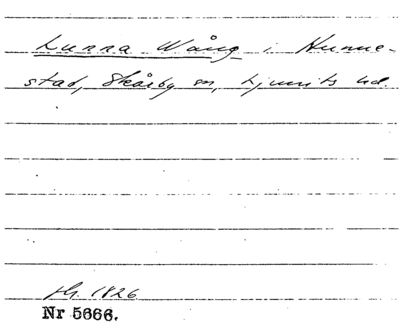 Lunna Wång i Hunne-
stad, Skårby sn, Ljunits hd.
1826
Nr 5666.